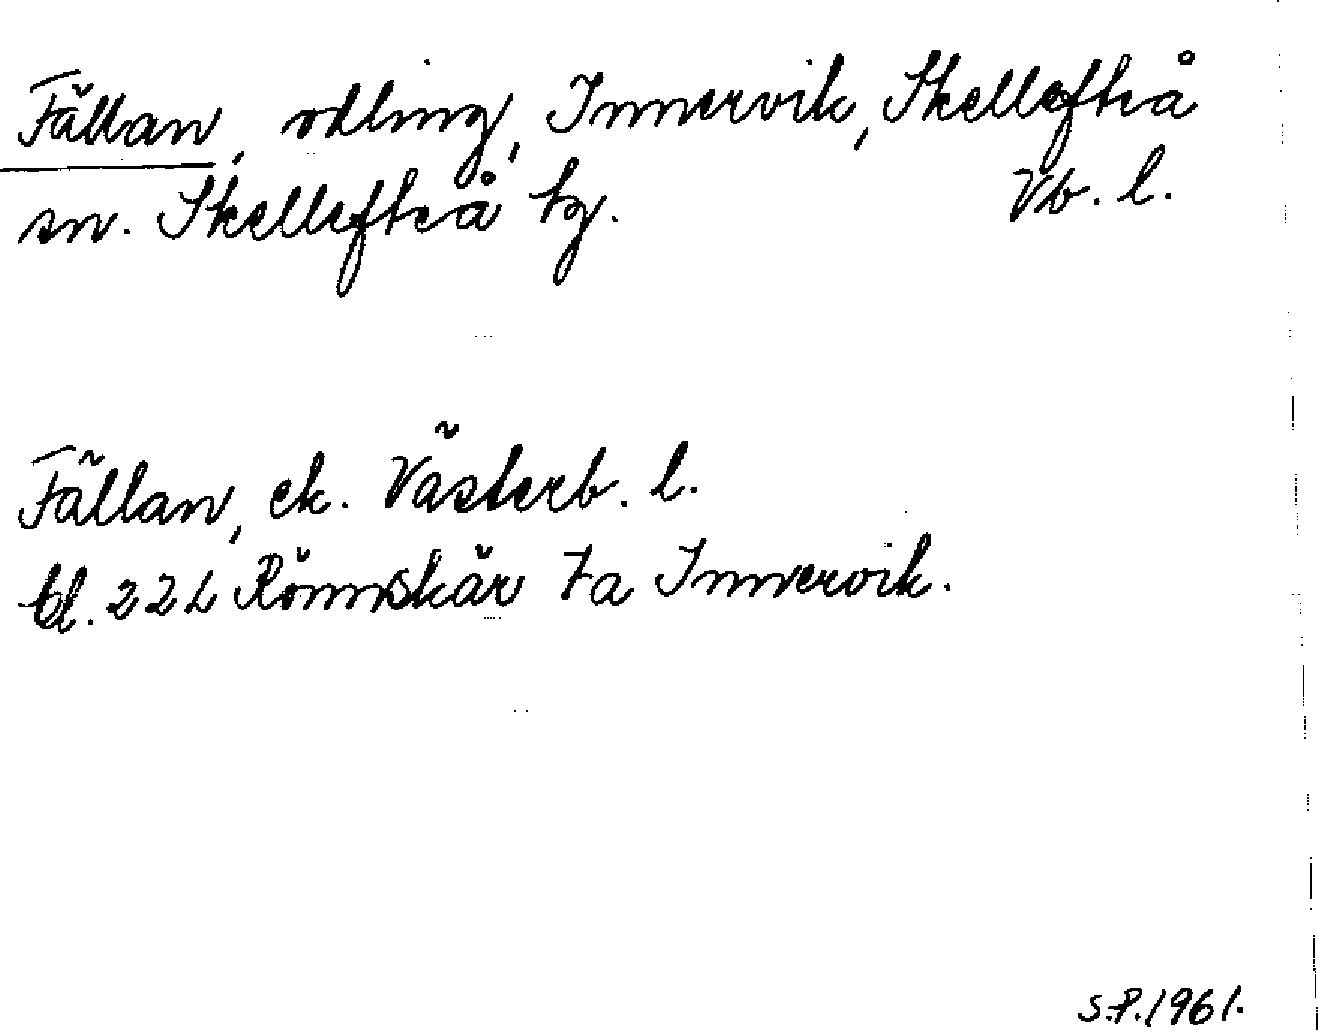 Fällan, odling, Innervik, Skellefteå
sn. Skellefteå tg. Vb. l.
Fällan, ek. Västerb. l.
bl. 22L Rönnskär 7a Innervik.
S.P. 1961.